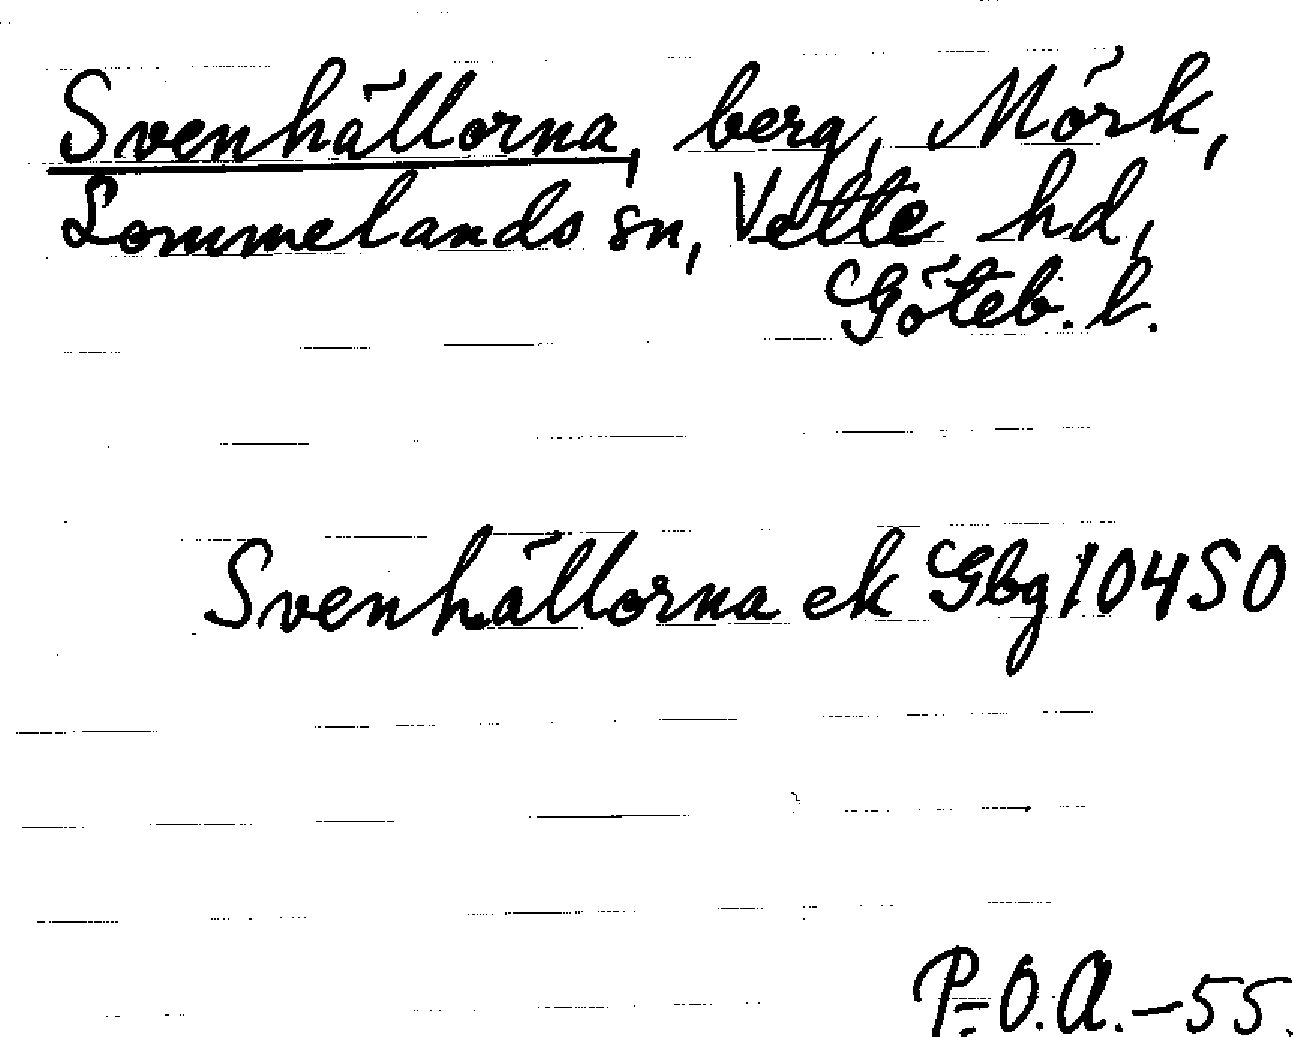 Svenhällorna, berg, Mörk,
Lommelands sn, Vette hd,
Göteb. l.
Svenhällorna ek Gbg 10450
P-O.A.-55.